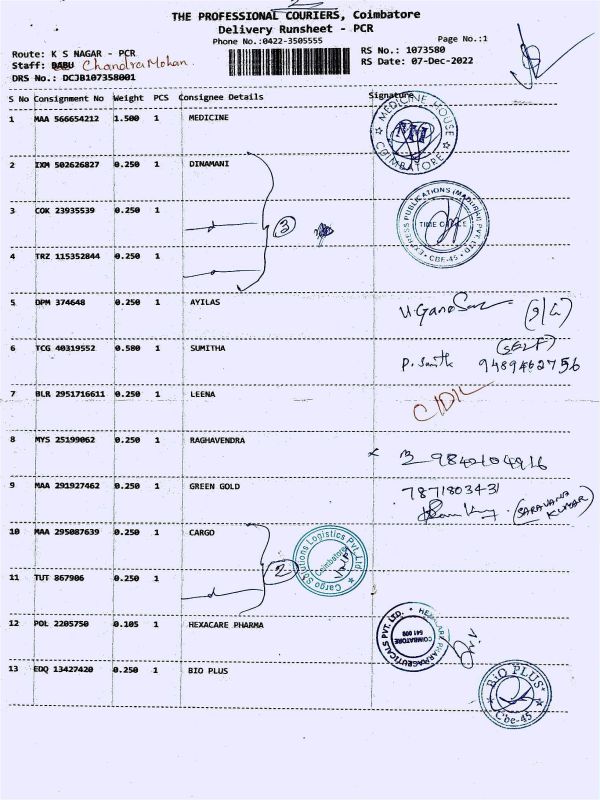 THE PROFESSIONAL COURIERS, Coimbatore
Delivery Runsheet - PCR
Phone No.:0422-3505555
Page No.:1
Route: K S NAGAR - PCR
RS No.: 1073580
Staff: BABU ChandraMohan.
RS Date: 07-Dec-2022
DRS No.: DCJB107358001
S No Consignment No Weight PCS Consignee Details Signature
1 MAA 566654212 1.500 1 MEDICINE
MEDICINE HOUSE COIMBATORE
2 IXM 502626827 0.250 1 DINAMANI
3 COK 23935539 0.250 1
3
EXPRESS PUBLICATIONS (MADURAI) PVT LTD
TIME OFFICE
CBE-45
4 TRZ 115352844 0.250 1
5 DPM 374648 0.250 1 AYILAS
6 TCG 40319552 0.580 1 SUMITHA
(SELF)
9489462756
7 BLR 2951716611 0.250 1 LEENA
8 MYS 25199062 0.250 1 RAGHAVENDRA
9842104916
9 MAA 291927462 0.250 1 GREEN GOLD
7871803431
(SARAVANA KUMAR)
10 MAA 295087639 0.250 1 CARGO
Cargo Solutions Logistics Pvt. Ltd.
Coimbatore
2
11 TUT 867906 0.250 1
12 POL 2205750 0.105 1 HEXACARE PHARMA
HEXACARE PHARMACEUTICALS PVT. LTD.
COIMBATORE
641 009
13 EDQ 13427420 0.250 1 BIO PLUS
BIO PLUS
Cbe-45